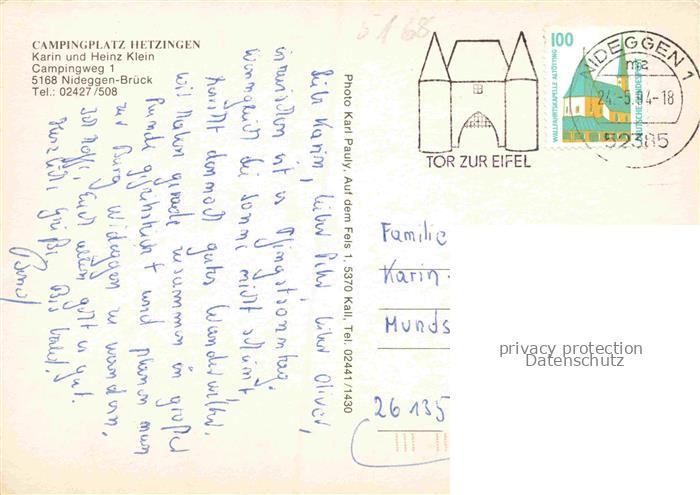 CAMPINGPLATZ HETZINGEN
Karin und Heinz Klein
Campingweg 1
5168 Nideggen-Brück
Tel.: 02427/508
51 68
Liebe Karin, lieber Peter, lieber Oliver,
inzwischen ist es Pfingstsonntag.
Wenngleich die Sonne nicht scheint,
herrscht dennoch gutes Wanderwetter.
Wir haben gerade zusammen in großer
Runde gefrühstückt und planen nun
zur Burg Nideggen zu wandern.
Ich hoffe, Euch allen geht es gut.
Herzliche Grüße. Bis bald!
Photo Karl Pauly, Auf dem Fels 1, 5370 Kall, Tel. 02441/1430
TOR ZUR EIFEL
100
DEUTSCHE BUNDESPOST
WALLFAHRTSKAPELLE ALTÖTTING
NIDEGGEN 1
ma
24.-5.94-18
52385
Familie
Karin
Munds
26 135
privacy protection
Datenschutz